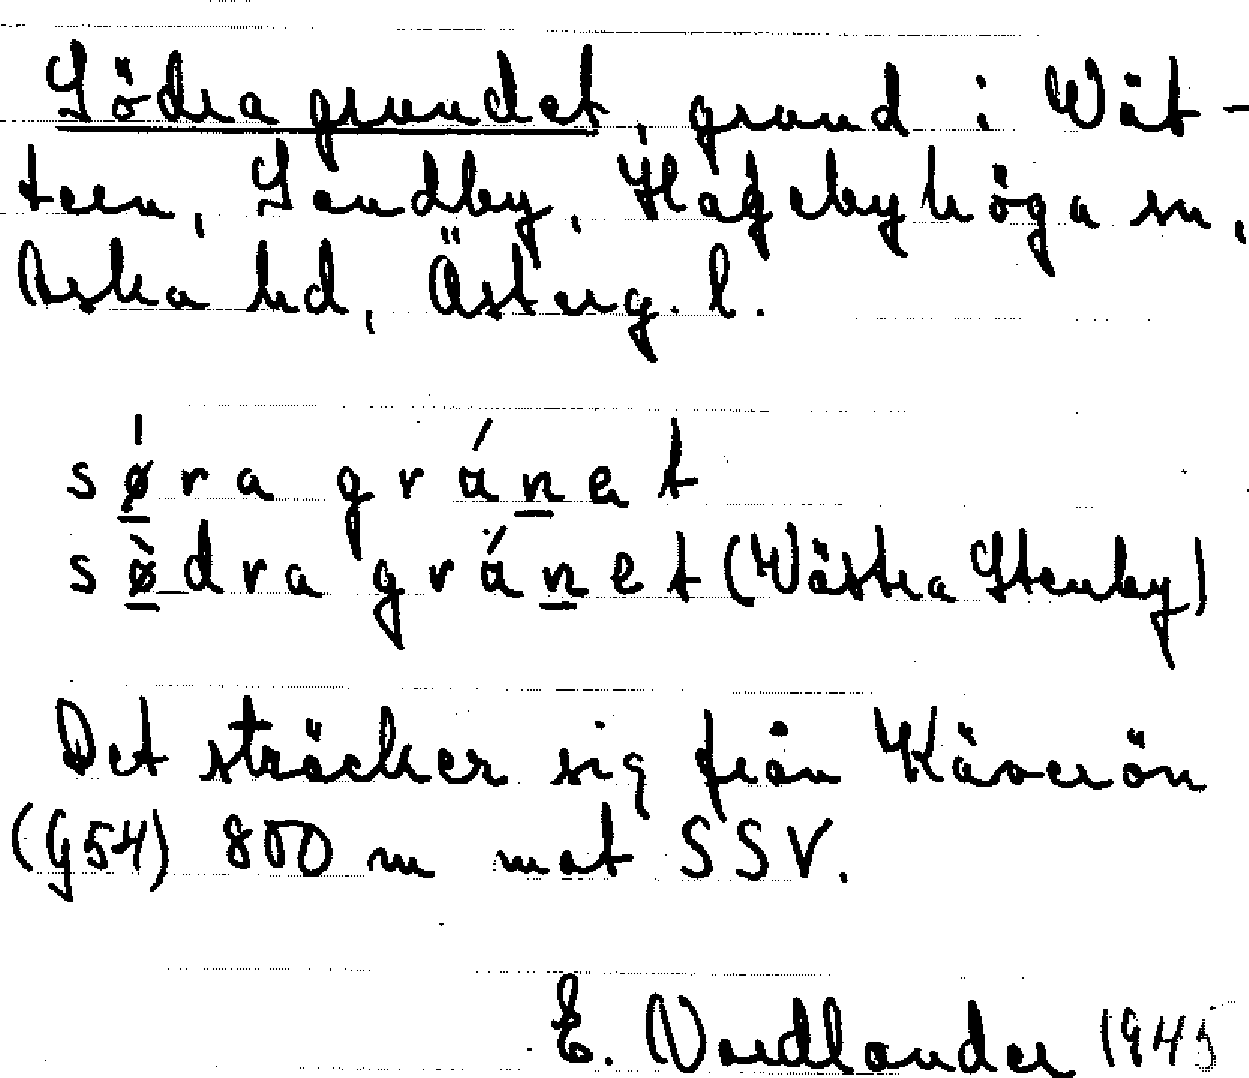 Södra grundet, grund i Vät-
tern, Sandby, Hagebyhöga sn,
Aska hd, Österg. l.
sǿ̱ra gránet
sø̱̀dra gránet (Västra Stenby)
Det sträcker sig från Käverön
(G54) 800 m mot SSV.
E. Nordlander 1945